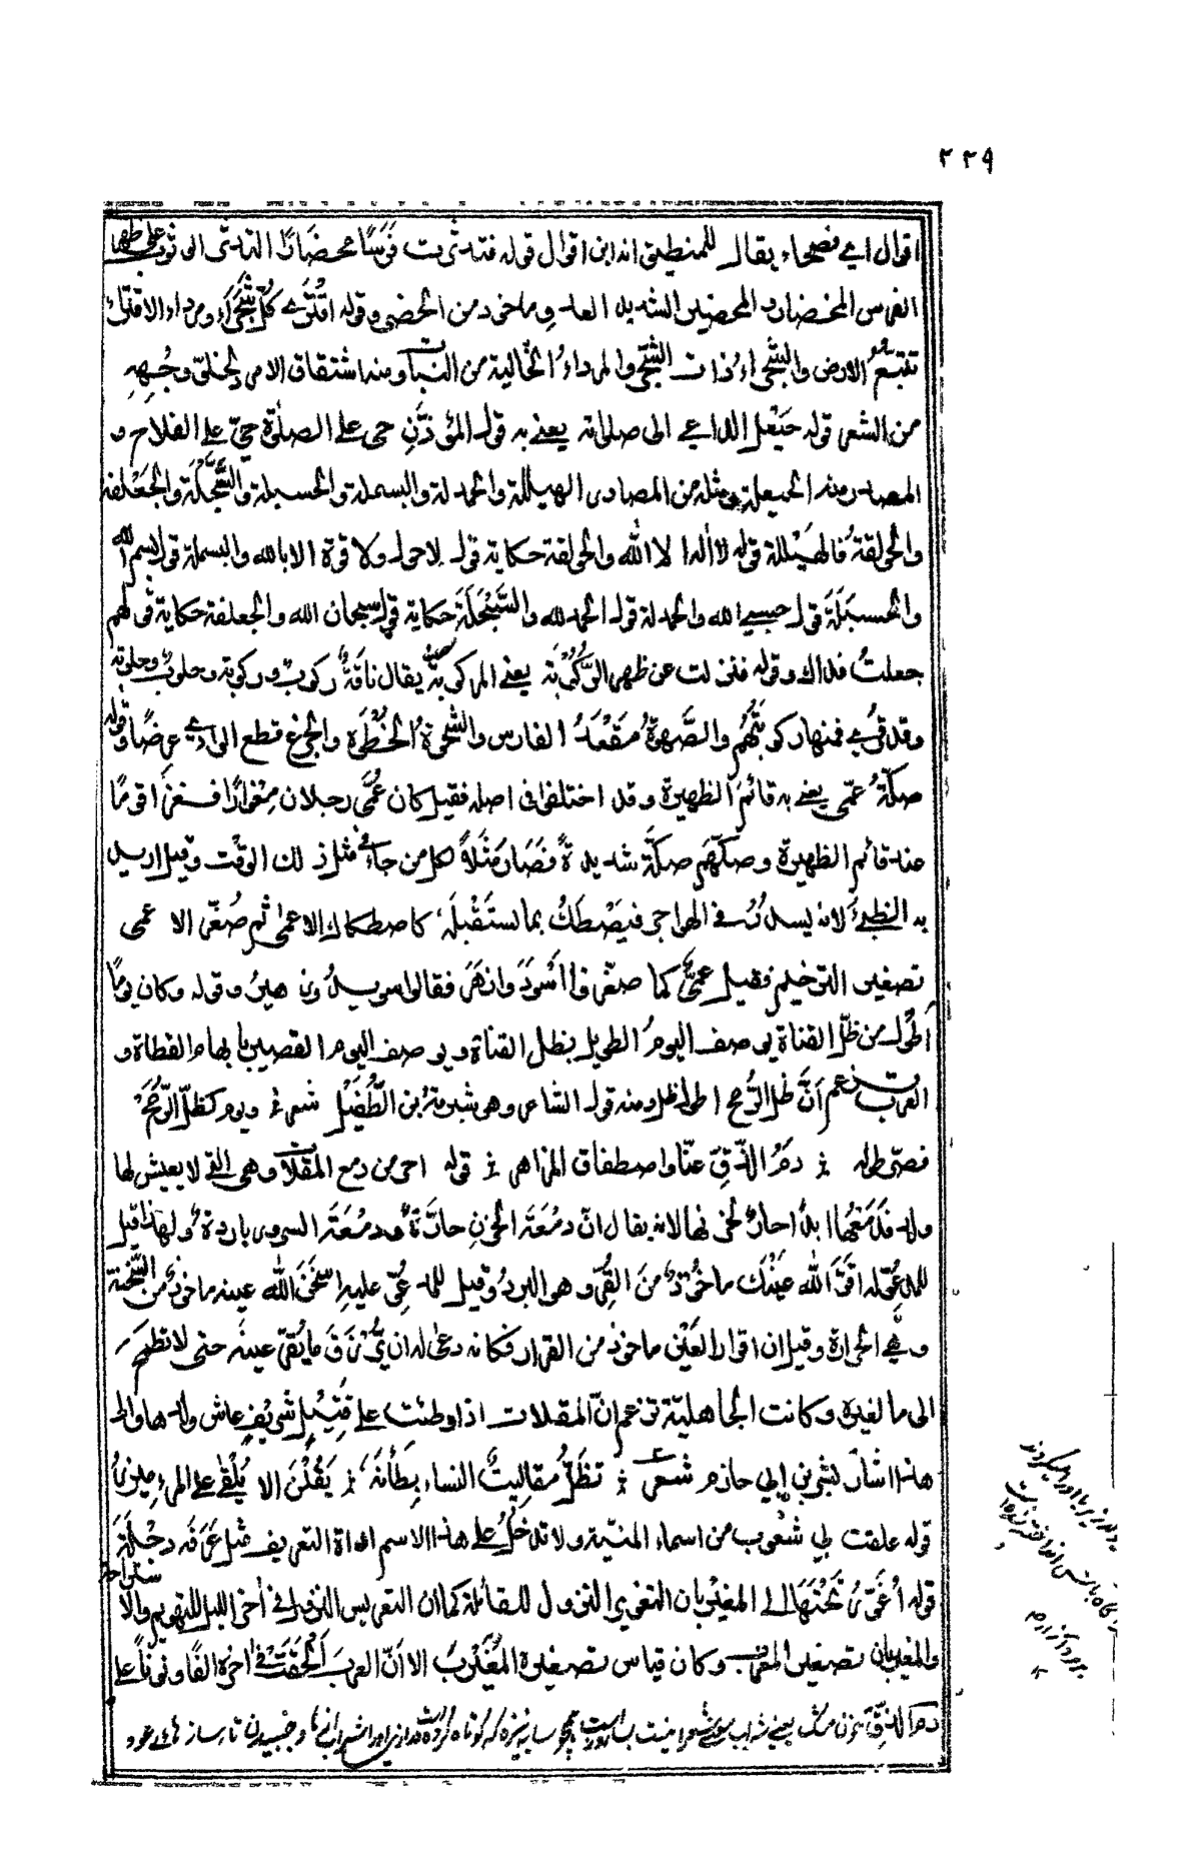 ٢٢٩
اقوال اي فصحاء يقال للمنطيق انه ابن اقوال قوله فتدثرت فرسًا محضارًا التدثر الوثوب على ظهر
الفرس المحضار والمحضير الشديد العدو ماخوذ من الحضر وقوله اقترى كل شجراء ومرداء الاقتراء
تتبع الارض والشجراء ذات الشجر والمرداء الخالية من النبات ومنه اشتقاق الامرد لخلو وجهه
من الشعر قوله حيعل الداعي الى صلاته يعني به قول المؤذن حي على الصلوة حي على الفلاح و
المصدر منه الحيعلة ومثله من المصادر الهيللة والحمدلة والبسملة والحسبلة والسبحلة والجعلفة
والحولقة فالهيللة قوله لا اله الا الله والحولقة حكاية قول لا حول ولا قوة الا بالله والبسملة قول بسم الله
والحسبلة قول حسبي الله والحمدلة قول الحمد لله والسبحلة حكاية قول سبحان الله والجعلفة حكاية قولهم
جعلت فداك وقوله فنزلت عن ظهر الركوبة يعني المركوبة يقال ناقة ركوب وركوبة وحلوب وحلوبة
وقد قرئ فمنها ركوبتهم والصهوة مقعد الفارس والشحوة الخطوة والجزع قطع الوادي عرضًا وقوله
صكة عمي يعني به قائم الظهيرة وقد اختلف في اصله فقيل كان عمي رجلا مغوارًا فغزا قومًا
عند قائم الظهيرة وصكهم صكة شديدة فصار مثلًا لكل من جاء في مثل ذلك الوقت وقيل اريد
به الظبي لانه يسدر في الهواجر فيصطك بما يستقبله كاصطكاك الاعمى ثم صغر الاعمى
تصغير الترخيم فقيل عمي كما صغروا اسود وازهر فقالوا سويد وزهير وقوله وكان يومًا
اطول من ظل القناة يوصف اليوم الطويل بظل القناة ويوصف اليوم القصير بابهام القطاة و
العرب تزعم ان ظل الرمح اطول ظل ومنه قول الشاعر وهو شبرمة بن الطفيل شعر ويوم كظل الرمح
قصر طوله دم الزق عنا واصطفاق المزاهر قوله احر من دمع المقلات وهي التي لا يعيش لها
ولد فدمعها ابدًا حار لحزنها لانه يقال ان دمعة الحزن حارة ودمعة السرور باردة ولهذا قيل
للمدعو له اقر الله عينك ماخوذ من القر وهو البرد وقيل للمدعو عليه اسخن الله عينه ماخوذ من السخنة
وهي الحرارة وقيل ان اقرار العين ماخوذ من القرار فكانه دعى له ان يرزق ما يقر عينه حتى لا تطمح
الى ما لغيره وكانت الجاهلية تزعم ان المقلات اذا وطئت على قتيل شريف عاش ولدها والى
هذا اشار بشر بن ابي حازم شعر تظل مقاليت النساء يطأنه يقلن الا يلقى على المرء ميزر
قوله علقت بي شعوب من اسماء المنية ولا تدخل على هذا الاسم اداة التعريف مثل عرفه دجلة
قوله اغور تحتها الى المغيربان التغوير النزول للقائلة كما ان التعريس النزول في اخر الليل للتهويم والاستراحة
والمغيربان تصغير المغرب وكان قياس تصغيره المغيرب الا ان العرب الحقت في اخره الفًا ونونًا على